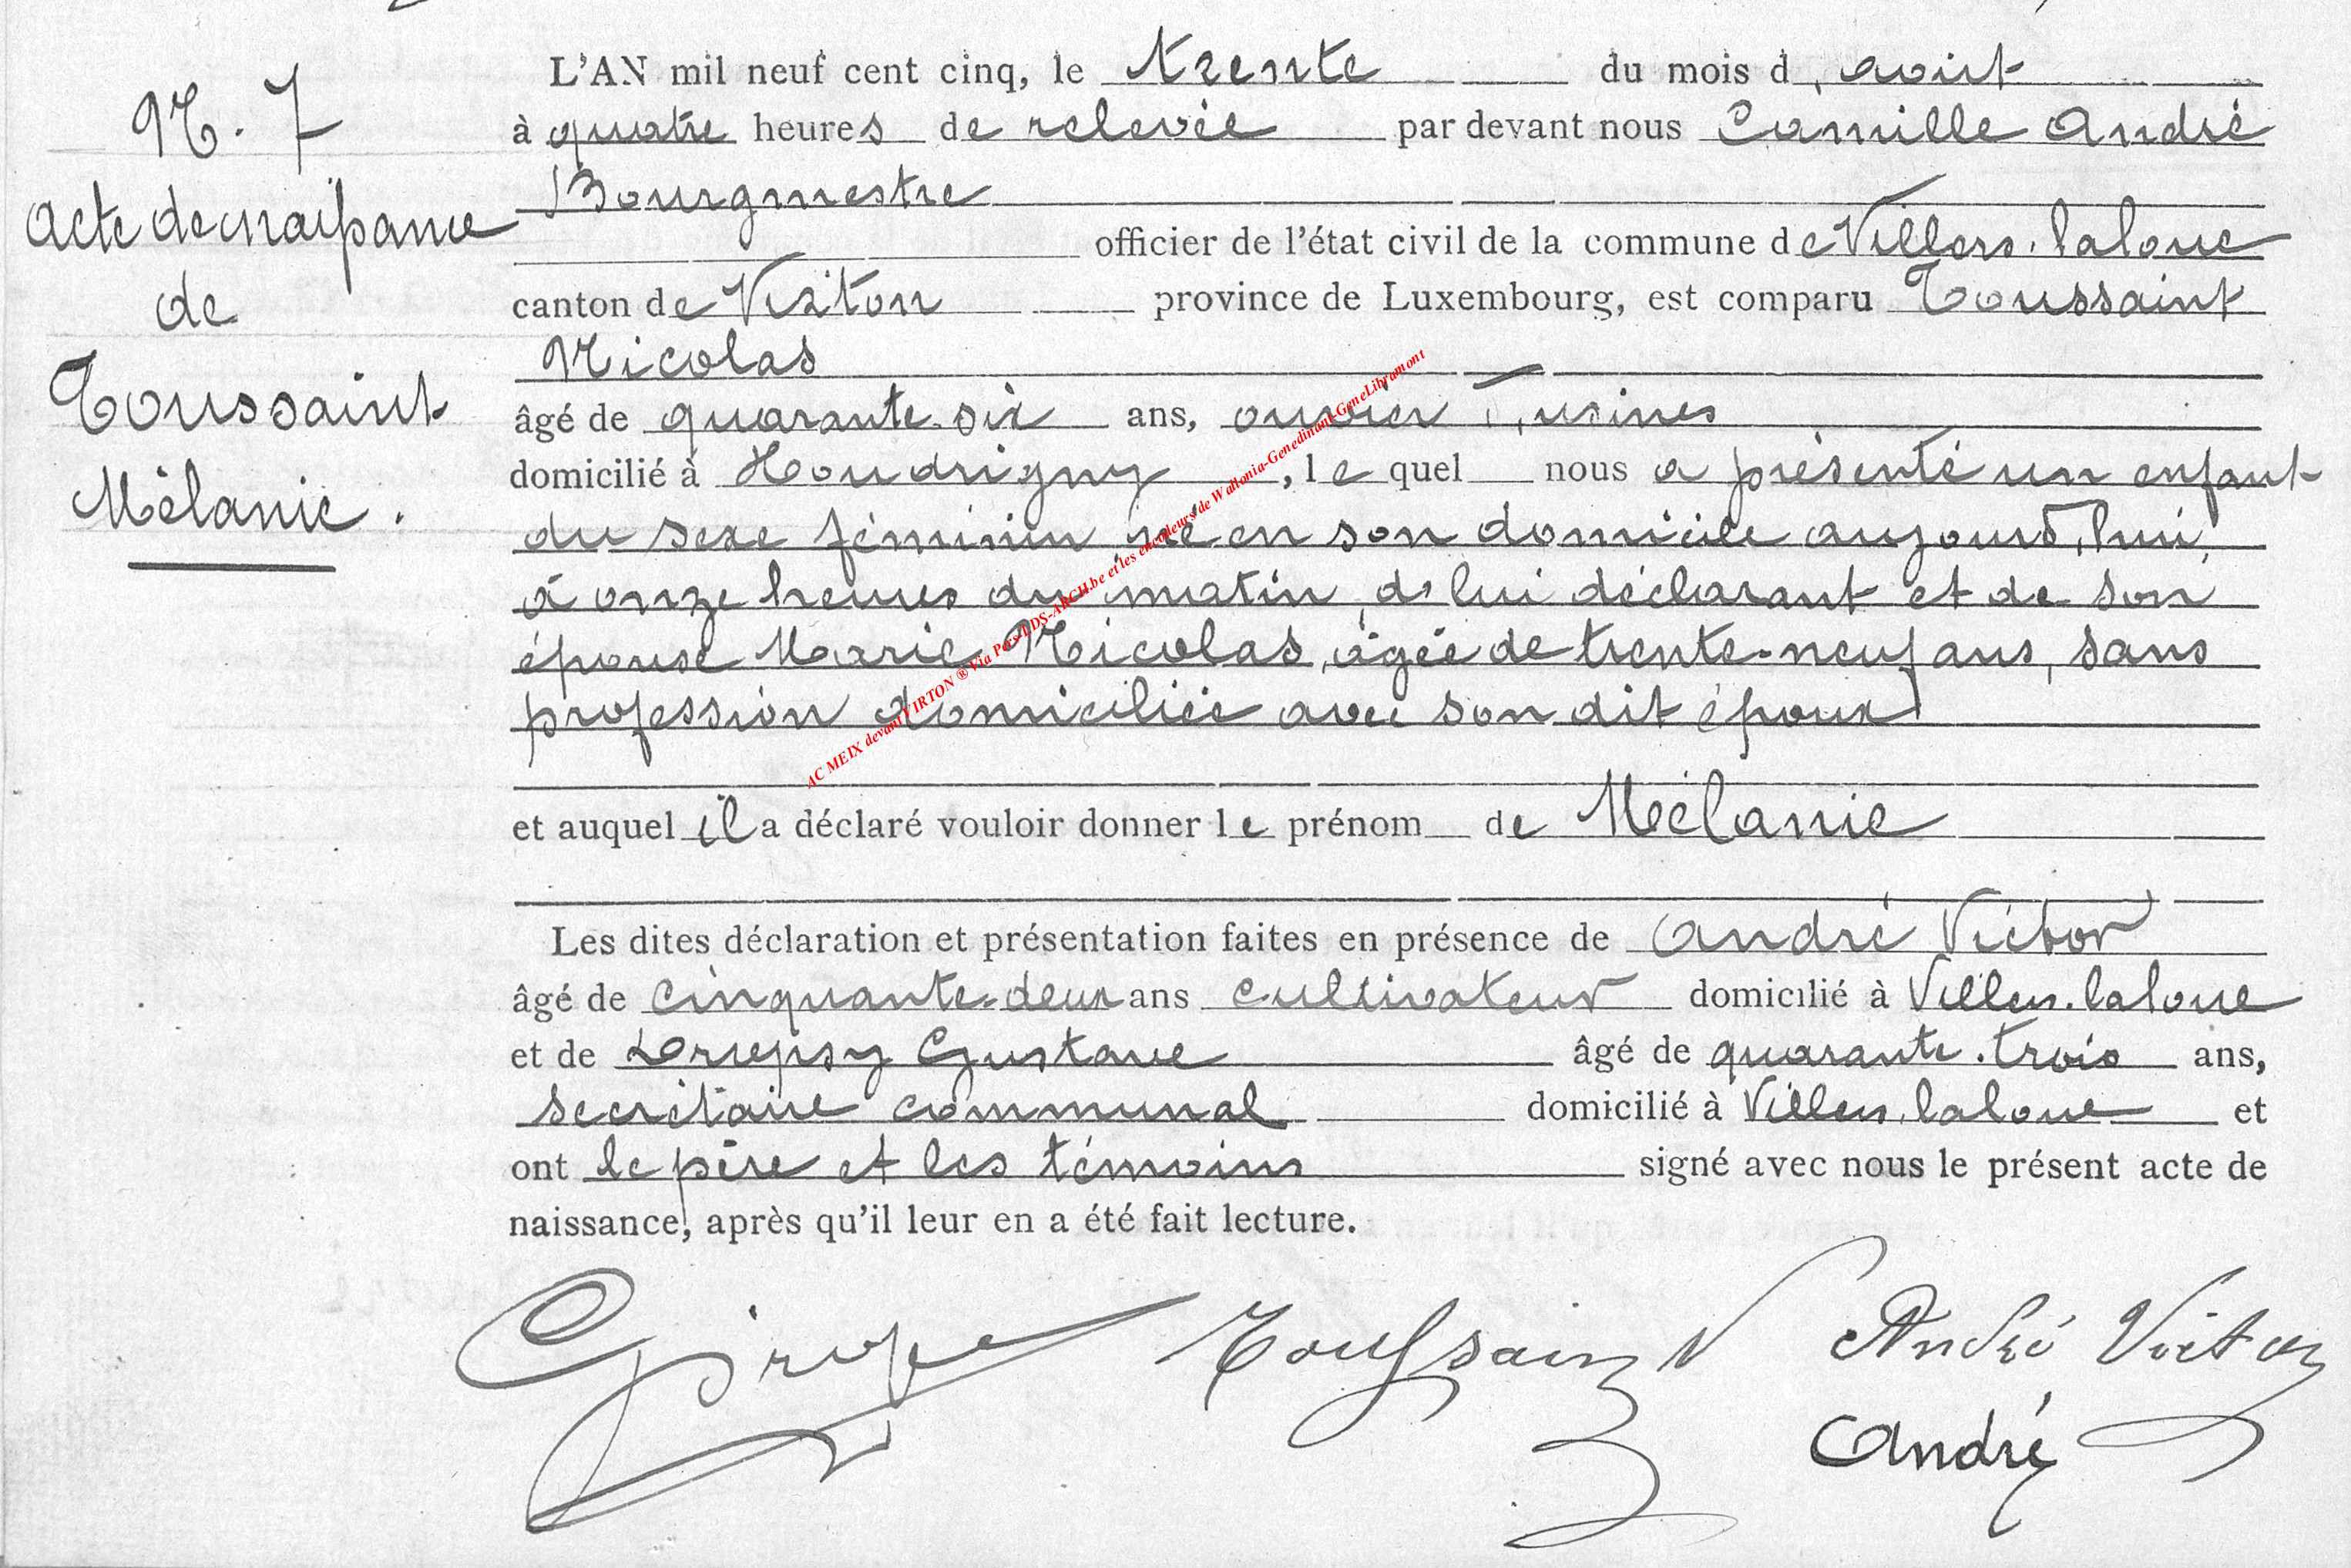 N. 7
Acte de naissance
de
Toussaint
Mélanie.
L'AN mil neuf cent cinq, le trente du mois d'août
à quatre heures de relevée par devant nous Camille André
Bourgmestre
officier de l'état civil de la commune de Villers-la-loue
canton de Virton province de Luxembourg, est comparu Toussaint
Nicolas
âgé de quarante-six ans, ouvrier d'usines
domicilié à Houdrigny, lequel nous a présenté un enfant
du sexe féminin, né en son domicile aujourd'hui,
à onze heures du matin, de lui déclarant et de son
épouse Marie Nicolas, âgée de trente-neuf ans, sans
profession domiciliée avec son dit époux
et auquel il a déclaré vouloir donner le prénom de Mélanie
Les dites déclaration et présentation faites en présence de André Victor
âgé de cinquante-deux ans cultivateur domicilié à Villers-la-loue
et de Gustave âgé de quarante-trois ans,
secrétaire communal domicilié à Villers-la-loue et
ont le père et les témoins signé avec nous le présent acte de
naissance, après qu'il leur en a été fait lecture.
Toussaint N André Victor
André
AC MEIX devant VIRTON ® Via Pers-LDS-ARCH.be et les encodeurs de Wallonia-Genedinant-GeneLibramont